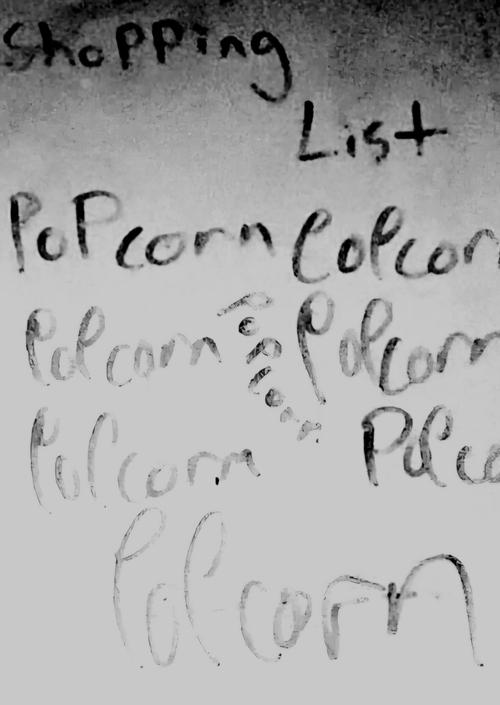 Shopping
List
Popcorn Popcor
Popcorn Popcorn Popcorn
Popcorn Popco
Popcorn